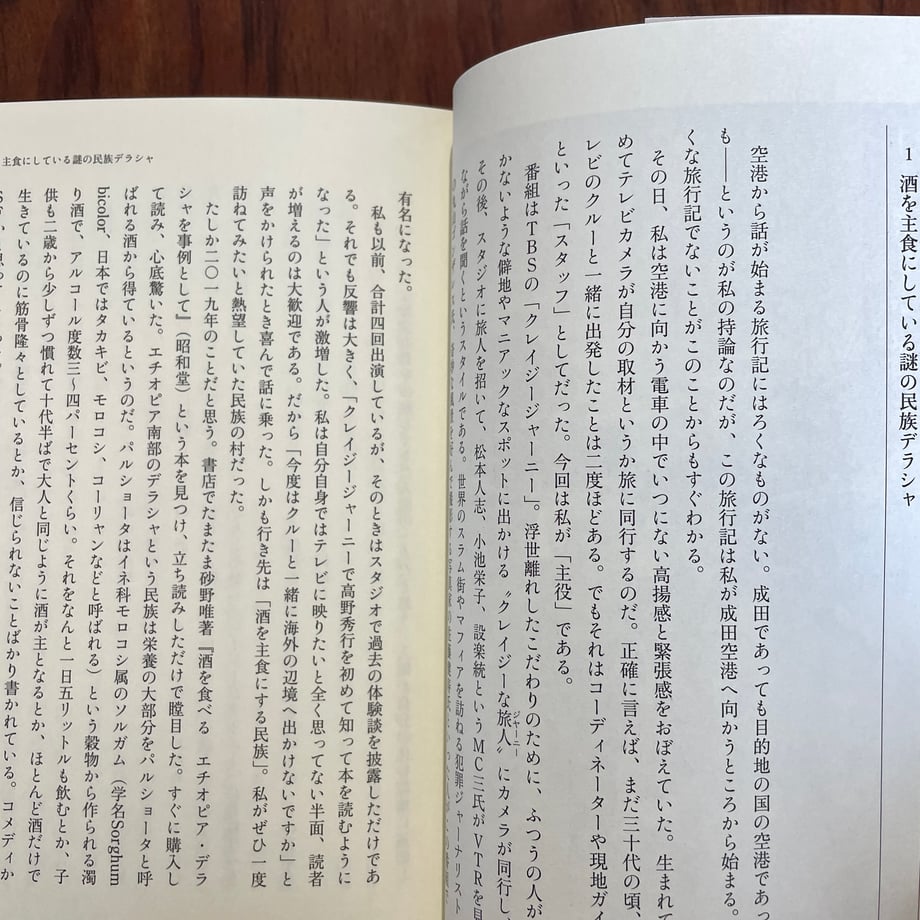 1 酒を主食にしている謎の民族デラシャ
空港から話が始まる旅行記にはろくなものがない。成田であっても目的地の国の空港であ
も——というのが私の持論なのだが、この旅行記は私が成田空港へ向かうところから始まる。
くな旅行記でないことがこのことからもすぐわかる。
その日、私は空港に向かう電車の中でいつにない高揚感と緊張感をおぼえていた。生まれて
めてテレビカメラが自分の取材というか旅に同行するのだ。正確に言えば、まだ三十代の頃、
レビのクルーと一緒に出発したことは二度ほどある。でもそれはコーディネーターや現地ガイ
といった「スタッフ」としてだった。今回は私が「主役」である。
番組はTBSの「クレイジージャーニー」。浮世離れしたこだわりのために、ふつうの人が
かないような僻地やマニアックなスポットに出かける〝クレイジーな旅人〟にカメラが同行し、
ジャーニー
その後、スタジオに旅人を招いて、松本人志、小池栄子、設楽統というMC三氏がVTRを見
ながら話を聞くというスタイルである。世界のスラム街やマフィアを訪ねる犯罪ジャーナリスト
主食にしている謎の民族デラシャ
有名になった。
私も以前、合計四回出演しているが、そのときはスタジオで過去の体験談を披露しただけであ
る。それでも反響は大きく、「クレイジージャーニーで高野秀行を初めて知って本を読むように
なった」という人が激増した。私は自分自身ではテレビに映りたいと全く思ってない半面、読者
が増えるのは大歓迎である。だから「今度はクルーと一緒に海外の辺境へ出かけないですか」と
声をかけられたとき喜んで話に乗った。しかも行き先は「酒を主食にする民族」。私がぜひ一度
訪ねてみたいと熱望していた民族の村だった。
たしか二〇一九年のことだと思う。書店でたまたま砂野唯著『酒を食べる エチオピア・デラ
シャを事例として』（昭和堂）という本を見つけ、立ち読みしただけで瞠目した。すぐに購入し
て読み、心底驚いた。エチオピア南部のデラシャという民族は栄養の大部分をパルショータと呼
ばれる酒から得ているというのだ。パルショータはイネ科モロコシ属のソルガム（学名Sorghum
bicolor、日本ではタカキビ、モロコシ、コーリャンなどと呼ばれる）という穀物から作られる濁
り酒で、アルコール度数三〜四パーセントくらい。それをなんと一日五リットルも飲むとか、子
供も二歳から少しずつ慣れて十代半ばで大人と同じように酒が主となるとか、ほとんど酒だけで
生きているのに筋骨隆々としているとか、信じられないことばかり書かれている。コメディか